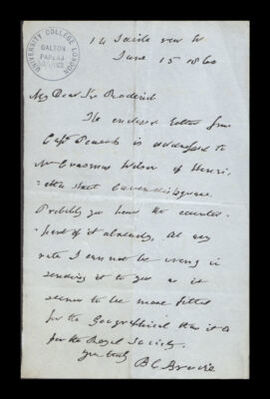 UNIVERSITY COLLEGE LONDON
GALTON
PAPERS
14 Savile row W
June 15 1860
My Dear Sir Roderick
The enclosed letter from
Capt is addressed to
Mr Erasmus Wilson of Henri-
-etta street Cavendish Square.
Probably you have the counter-
-part of it already. At any
rate I can not be wrong in
sending it to you as it
seems to be more fitted
for the Geographical than it is
for the Royal Society.
Yrs truly
B C Brodie